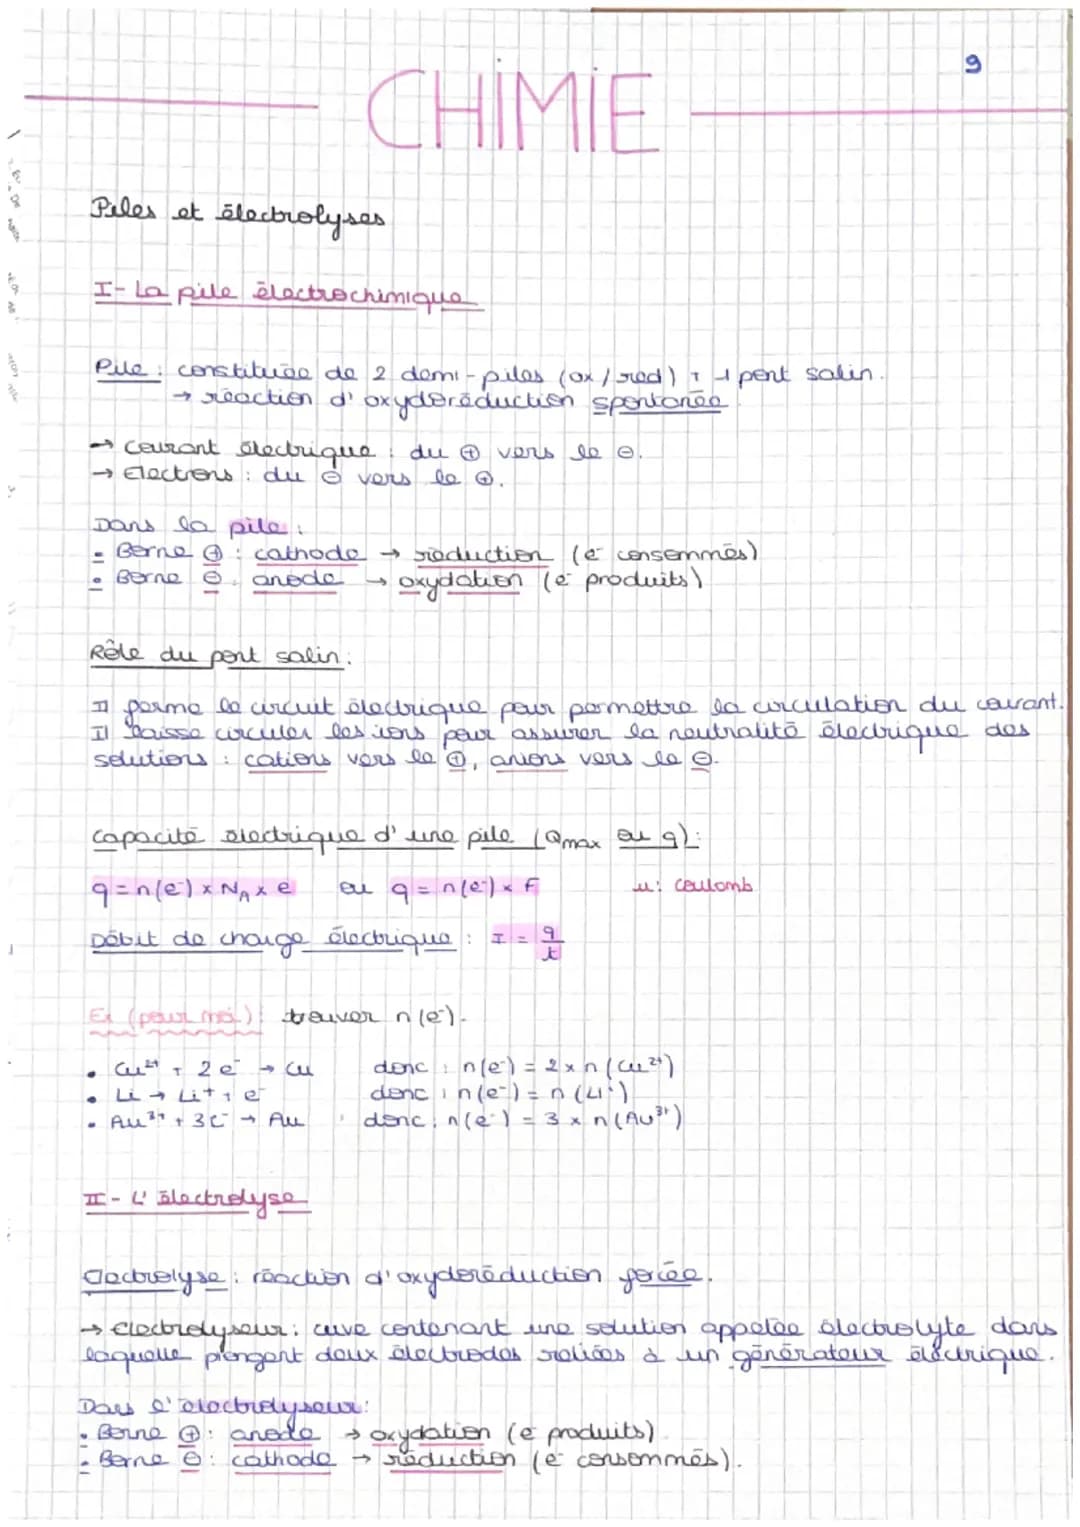 9
CHIMIE
Piles et électrolyses
I - La pile électrochimique
Pile : constituée de 2 demi-piles (ox / red) + 1 pont salin.
→ réaction d'oxydoréduction spontanée
→ Courant électrique : du ⊕ vers le ⊖.
→ Electrons : du ⊖ vers le ⊕.
Dans la pile :
- Borne ⊕ : cathode → réduction (e⁻ consommés)
• Borne ⊖ : anode → oxydation (e⁻ produits)
Rôle du pont salin :
Il ferme le circuit électrique pour permettre la circulation du courant.
Il laisse circuler les ions pour assurer la neutralité électrique des
solutions : cations vers le ⊕, anions vers le ⊖.
Capacité électrique d'une pile (Qmax ou q) :
q = n(e⁻) × N_A × e ou q = n(e⁻) × F u : Coulomb
Débit de charge électrique : I = q/t
Ex (pour moi) : trouver n(e⁻).
• Cu²⁺ + 2e⁻ → Cu donc : n(e⁻) = 2 × n(Cu²⁺)
• Li → Li⁺ + e⁻ donc : n(e⁻) = n(Li⁺)
• Au³⁺ + 3e⁻ → Au donc : n(e⁻) = 3 × n(Au³⁺)
II - L'électrolyse
Electrolyse : réaction d'oxydoréduction forcée.
→ Electrolyseur : cuve contenant une solution appelée électrolyte dans
laquelle plongent deux électrodes reliées à un générateur électrique.
Dans l'électrolyseur :
• Borne ⊕ : anode → oxydation (e⁻ produits)
- Borne ⊖ : cathode → réduction (e⁻ consommés).